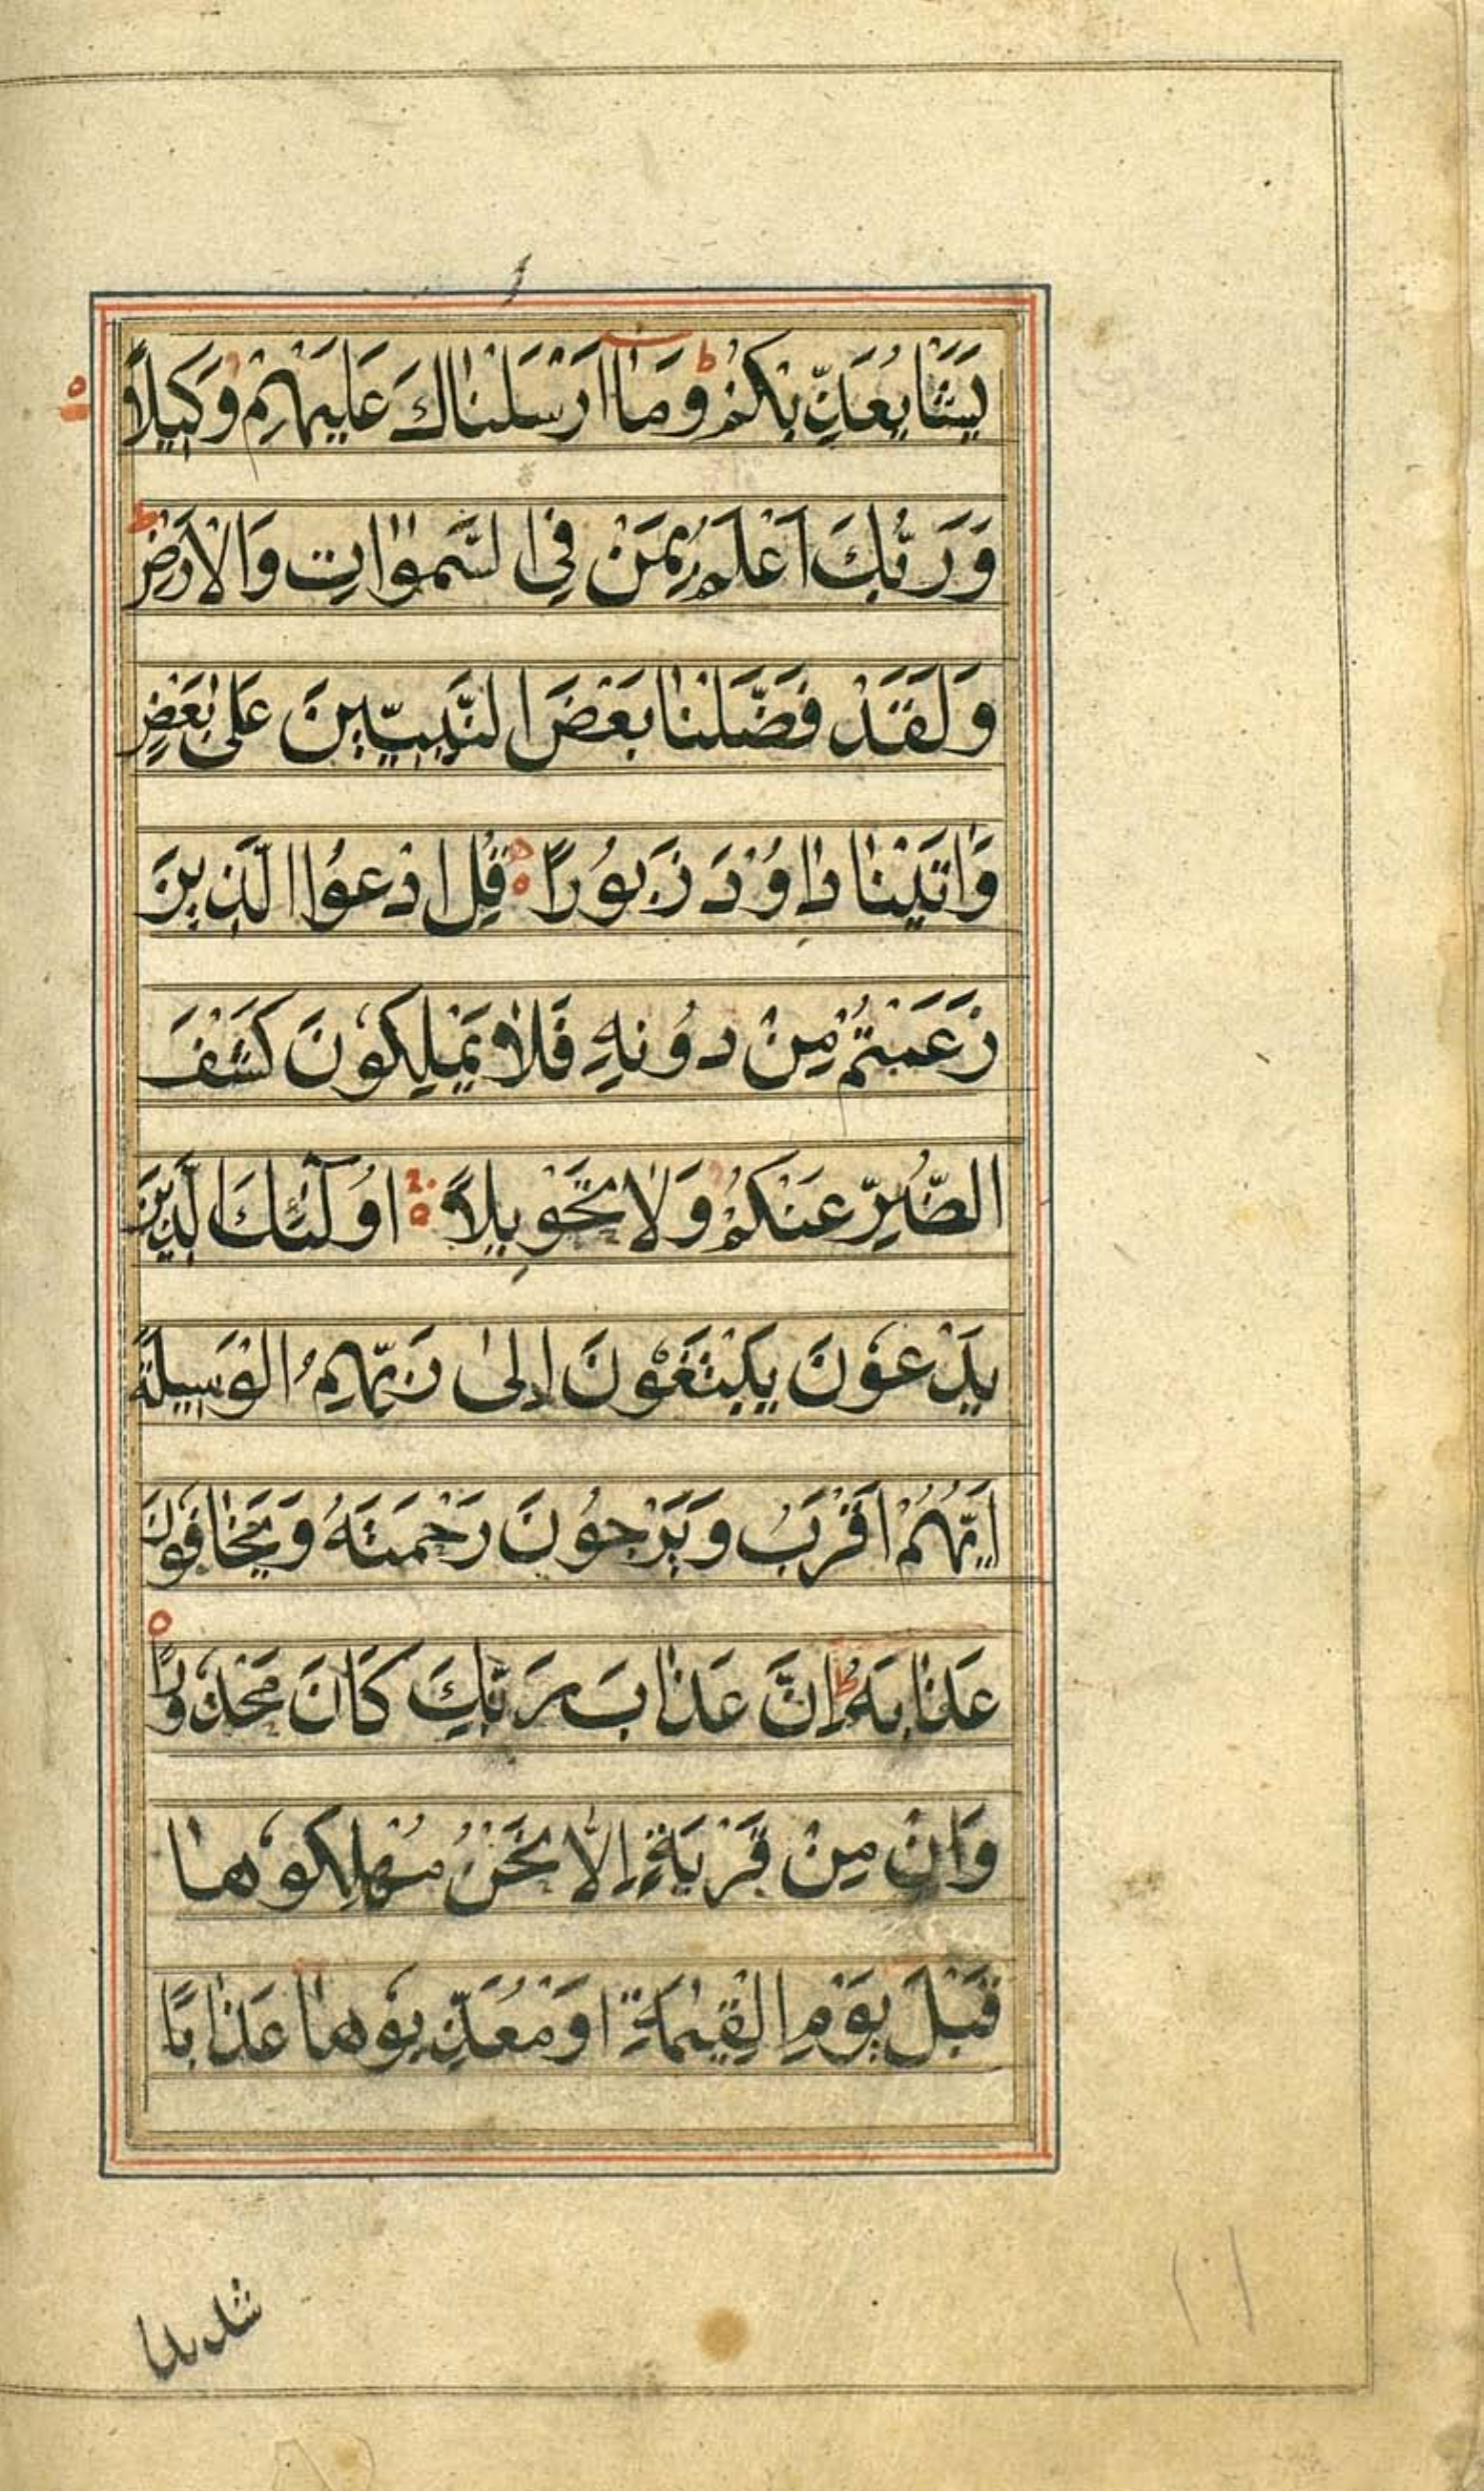 يَشَأْ يُعَذِّبْكُمْ ط وَمَا اَرْسَلْنَاكَ عَلَيْهِمْ وَكِيلًا ه
وَرَبُّكَ اَعْلَمُ بِمَنْ فِي السَّمٰوَاتِ وَالْاَرْضِ ط
وَلَقَدْ فَضَّلْنَا بَعْضَ النَّبِيّٖينَ عَلٰى بَعْضٍ
وَاٰتَيْنَا دَاوُدَ زَبُورًا ه قُلِ ادْعُوا الَّذِينَ
زَعَمْتُمْ مِنْ دُونِهِ فَلَا يَمْلِكُونَ كَشْفَ
الضُّرِّ عَنْكُمْ وَلَا تَحْوِيلًا ه اُولٰٓئِكَ الَّذِينَ
يَدْعُونَ يَبْتَغُونَ اِلٰى رَبِّهِمُ الْوَسِيلَةَ
اَيُّهُمْ اَقْرَبُ وَيَرْجُونَ رَحْمَتَهُ وَيَخَافُونَ
عَذَابَهُ ط اِنَّ عَذَابَ رَبِّكَ كَانَ مَحْذُورًا ه
وَاِنْ مِنْ قَرْيَةٍ اِلَّا نَحْنُ مُهْلِكُوهَا
قَبْلَ يَوْمِ الْقِيٰمَةِ اَوْ مُعَذِّبُوهَا عَذَابًا
شديدا